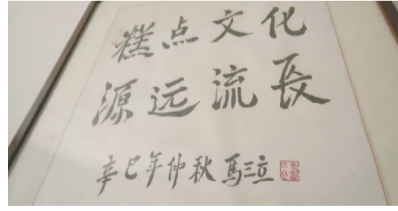 糕点文化
源远流長
辛巳年仲秋 馬三立